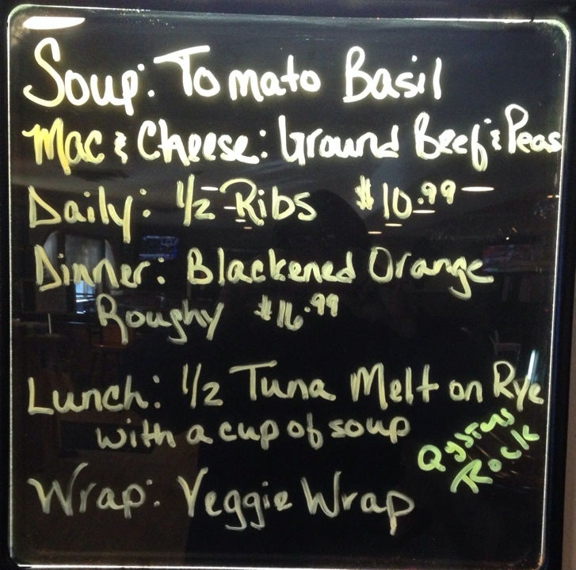 Soup: Tomato Basil
Mac & Cheese: Ground Beef & Peas
Daily: 1/2 Ribs $10.99
Dinner: Blackened Orange
Roughy $16.99
Lunch: 1/2 Tuna Melt on Rye
with a cup of soup
Oysters
Rock
Wrap: Veggie Wrap